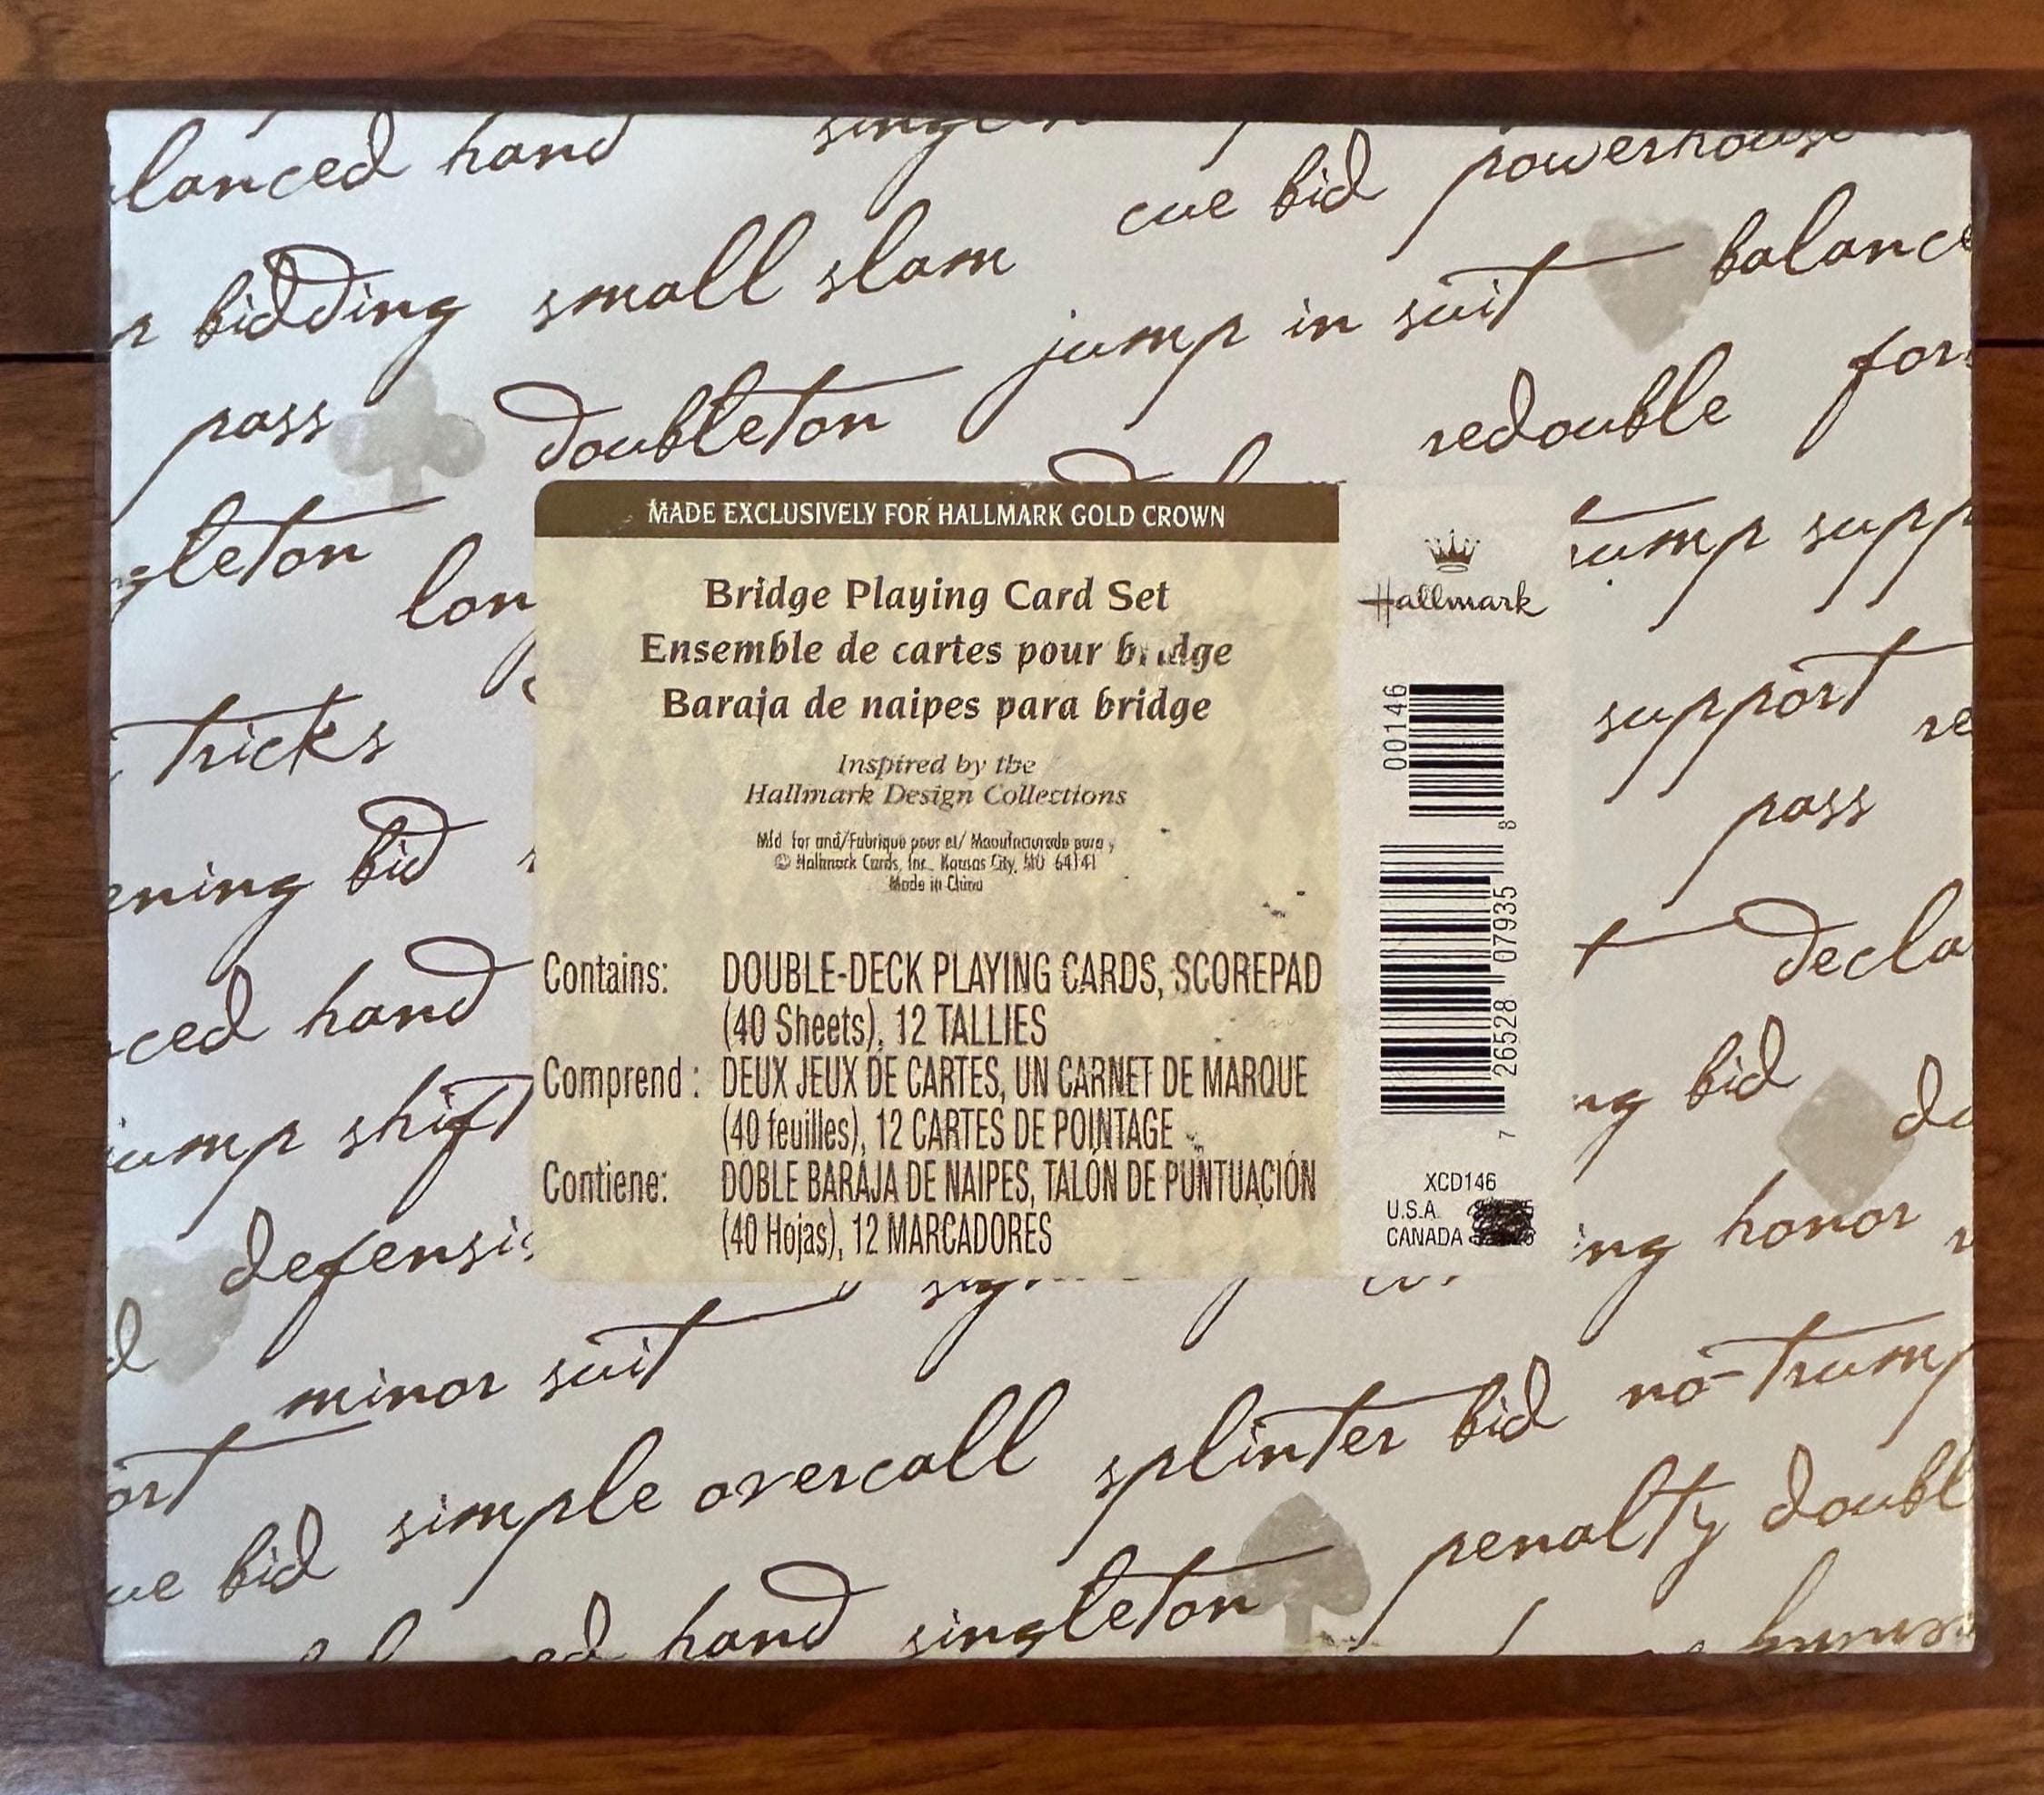 lanced hand
cue bid powerhouse
bidding small slam
jump in suit balance
pass doubleton
redouble for
gleton
lon
MADE EXCLUSIVELY FOR HALLMARK GOLD CROWN
Bridge Playing Card Set
Ensemble de cartes pour bridge
Baraja de naipes para bridge
Inspired by the
Hallmark Design Collections
Mfd for and/Fabrique pour et/ Manufacturado para y
© Hallmark Cards, Inc., Kansas City, MO 64141
Made in China
Contains: DOUBLE-DECK PLAYING CARDS, SCOREPAD
(40 Sheets), 12 TALLIES
Comprend : DEUX JEUX DE CARTES, UN CARNET DE MARQUE
(40 feuilles), 12 CARTES DE POINTAGE
Contiene: DOBLE BARAJA DE NAIPES, TALÓN DE PUNTUACIÓN
(40 Hojas), 12 MARCADORES
Hallmark
00146
8
7 26528 07935
XCD146
U.S.A.
CANADA
ump supp
support re
pass
t decla
ng bid do
ng honor
tricks
ening bid
ced hand
jump shift
defensi
minor suit
ort simple overcall splinter bid no-trump
ue bid
penalty doubl
ed hand singleton